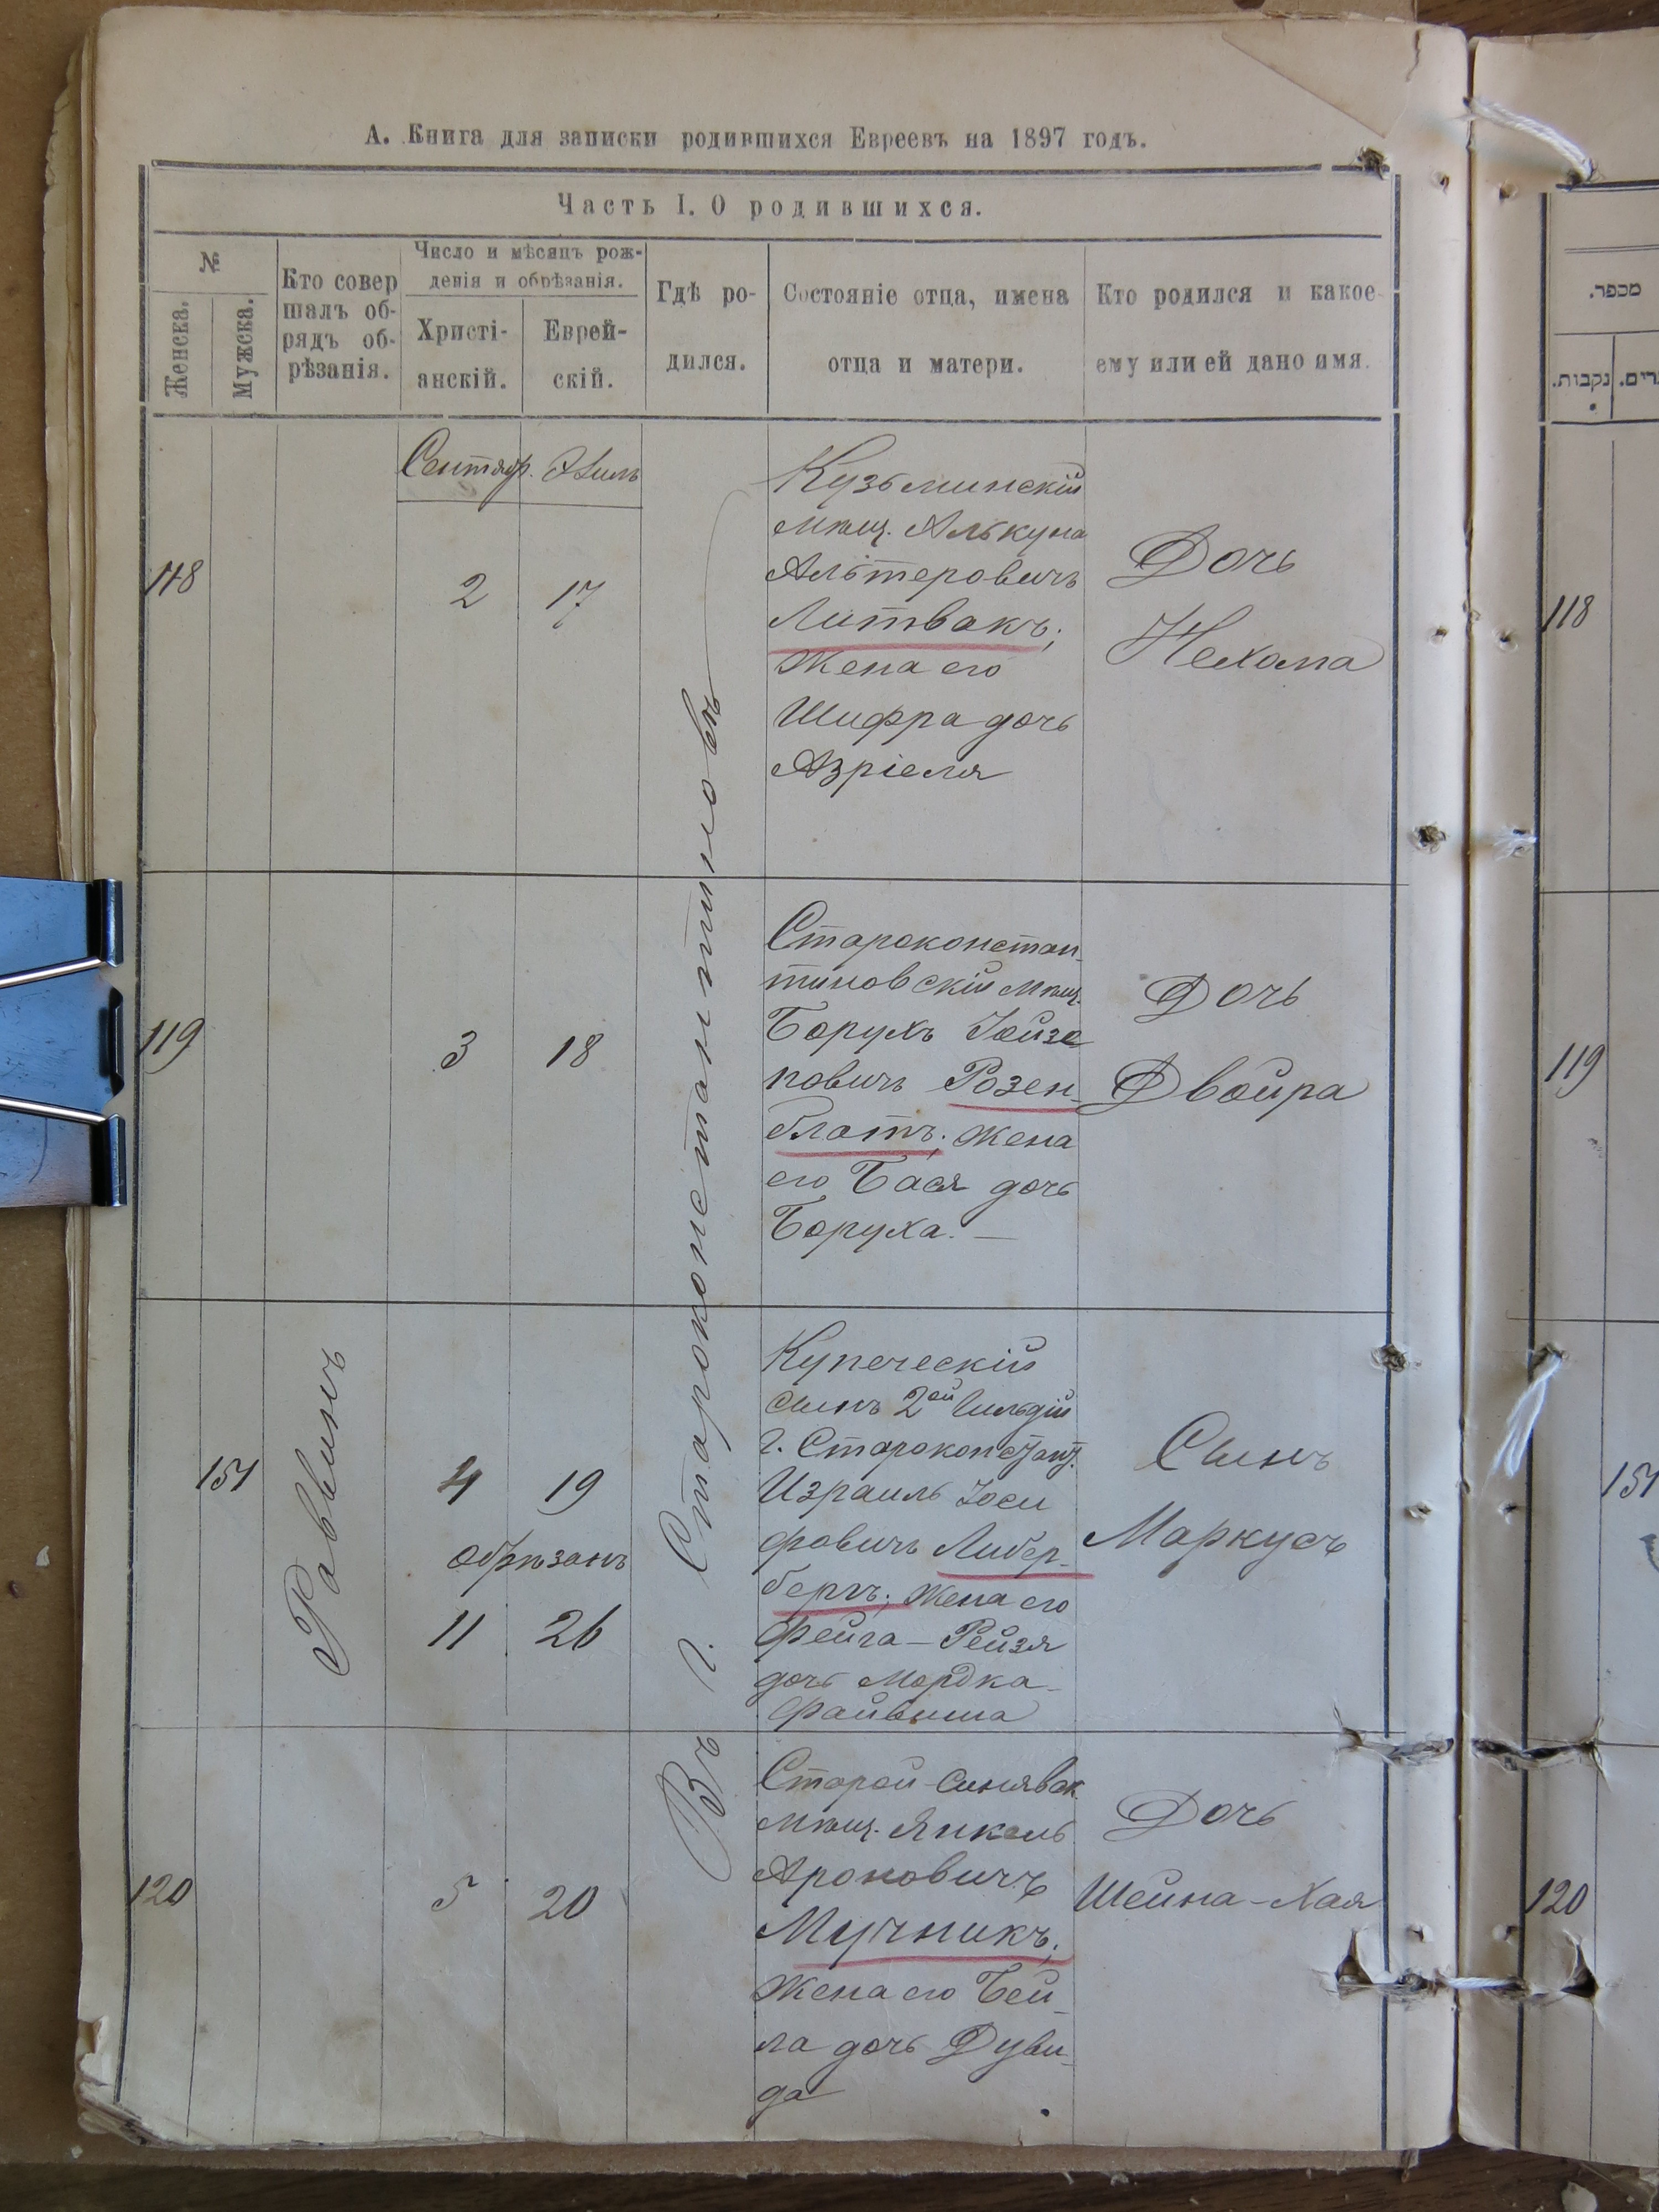 А. Книга для записки родившихся Евреевъ на 1897 годъ.
Часть I. О родившихся.
№
Женска.
Мужска.
Кто совер
шалъ об-
рядъ об-
рѣзанія.
Число и мѣсяцъ рож-
денія и обрѣзанія.
Христі-
анскій.
Еврей-
скій.
Гдѣ ро-
дился.
Состояніе отца, имена
отца и матери.
Кто родился и какое
ему или ей дано имя.
Сентябр. Элилъ
Въ г. Староконстантиновѣ
118
2
17
Кузьминскій
мѣщ. Алькуна
Альтеровичъ
Литвакъ;
Жена его
Шифра дочь
Азріеля
Дочь
Нехама
119
3
18
Староконстан-
тиновскій мѣщ.
Борухъ Іойзе
повичъ Розен-
блатъ; Жена
его Бася дочь
Боруха. —
Дочь
Двойра
151
Раввинъ
4
19
обрѣзанъ
11
26
Купеческій
сынъ 2ой Гильдіи
г. Староконстант.
Израиль Іоси
фовичъ Либер-
бергъ; Жена его
Фейга-Рейзя
дочь Мордка-
Файвиша
Сынъ
Маркусъ
120
5
20
Старой-Синявск
мѣщ. Янкель
Ароновичъ
Мучникъ;
Жена его Бей-
ла дочь Дуви-
да
Дочь
Шейна-Хая
מספר.
נקבות.
118
119
151
120